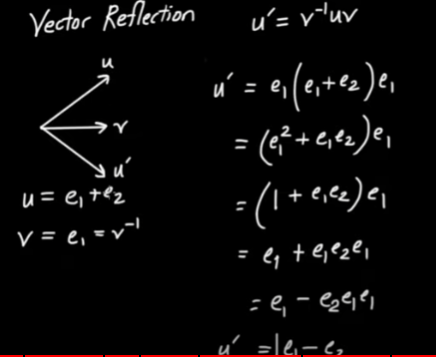 Vector Reflection
u
v
u′
u = e₁ + e₂
v = e₁ = v⁻¹
u′ = v⁻¹uv
u′ = e₁(e₁+e₂)e₁
= (e₁² + e₁e₂)e₁
= (1 + e₁e₂)e₁
= e₁ + e₁e₂e₁
= e₁ − e₂e₁e₁
u′ = e₁ − e₂